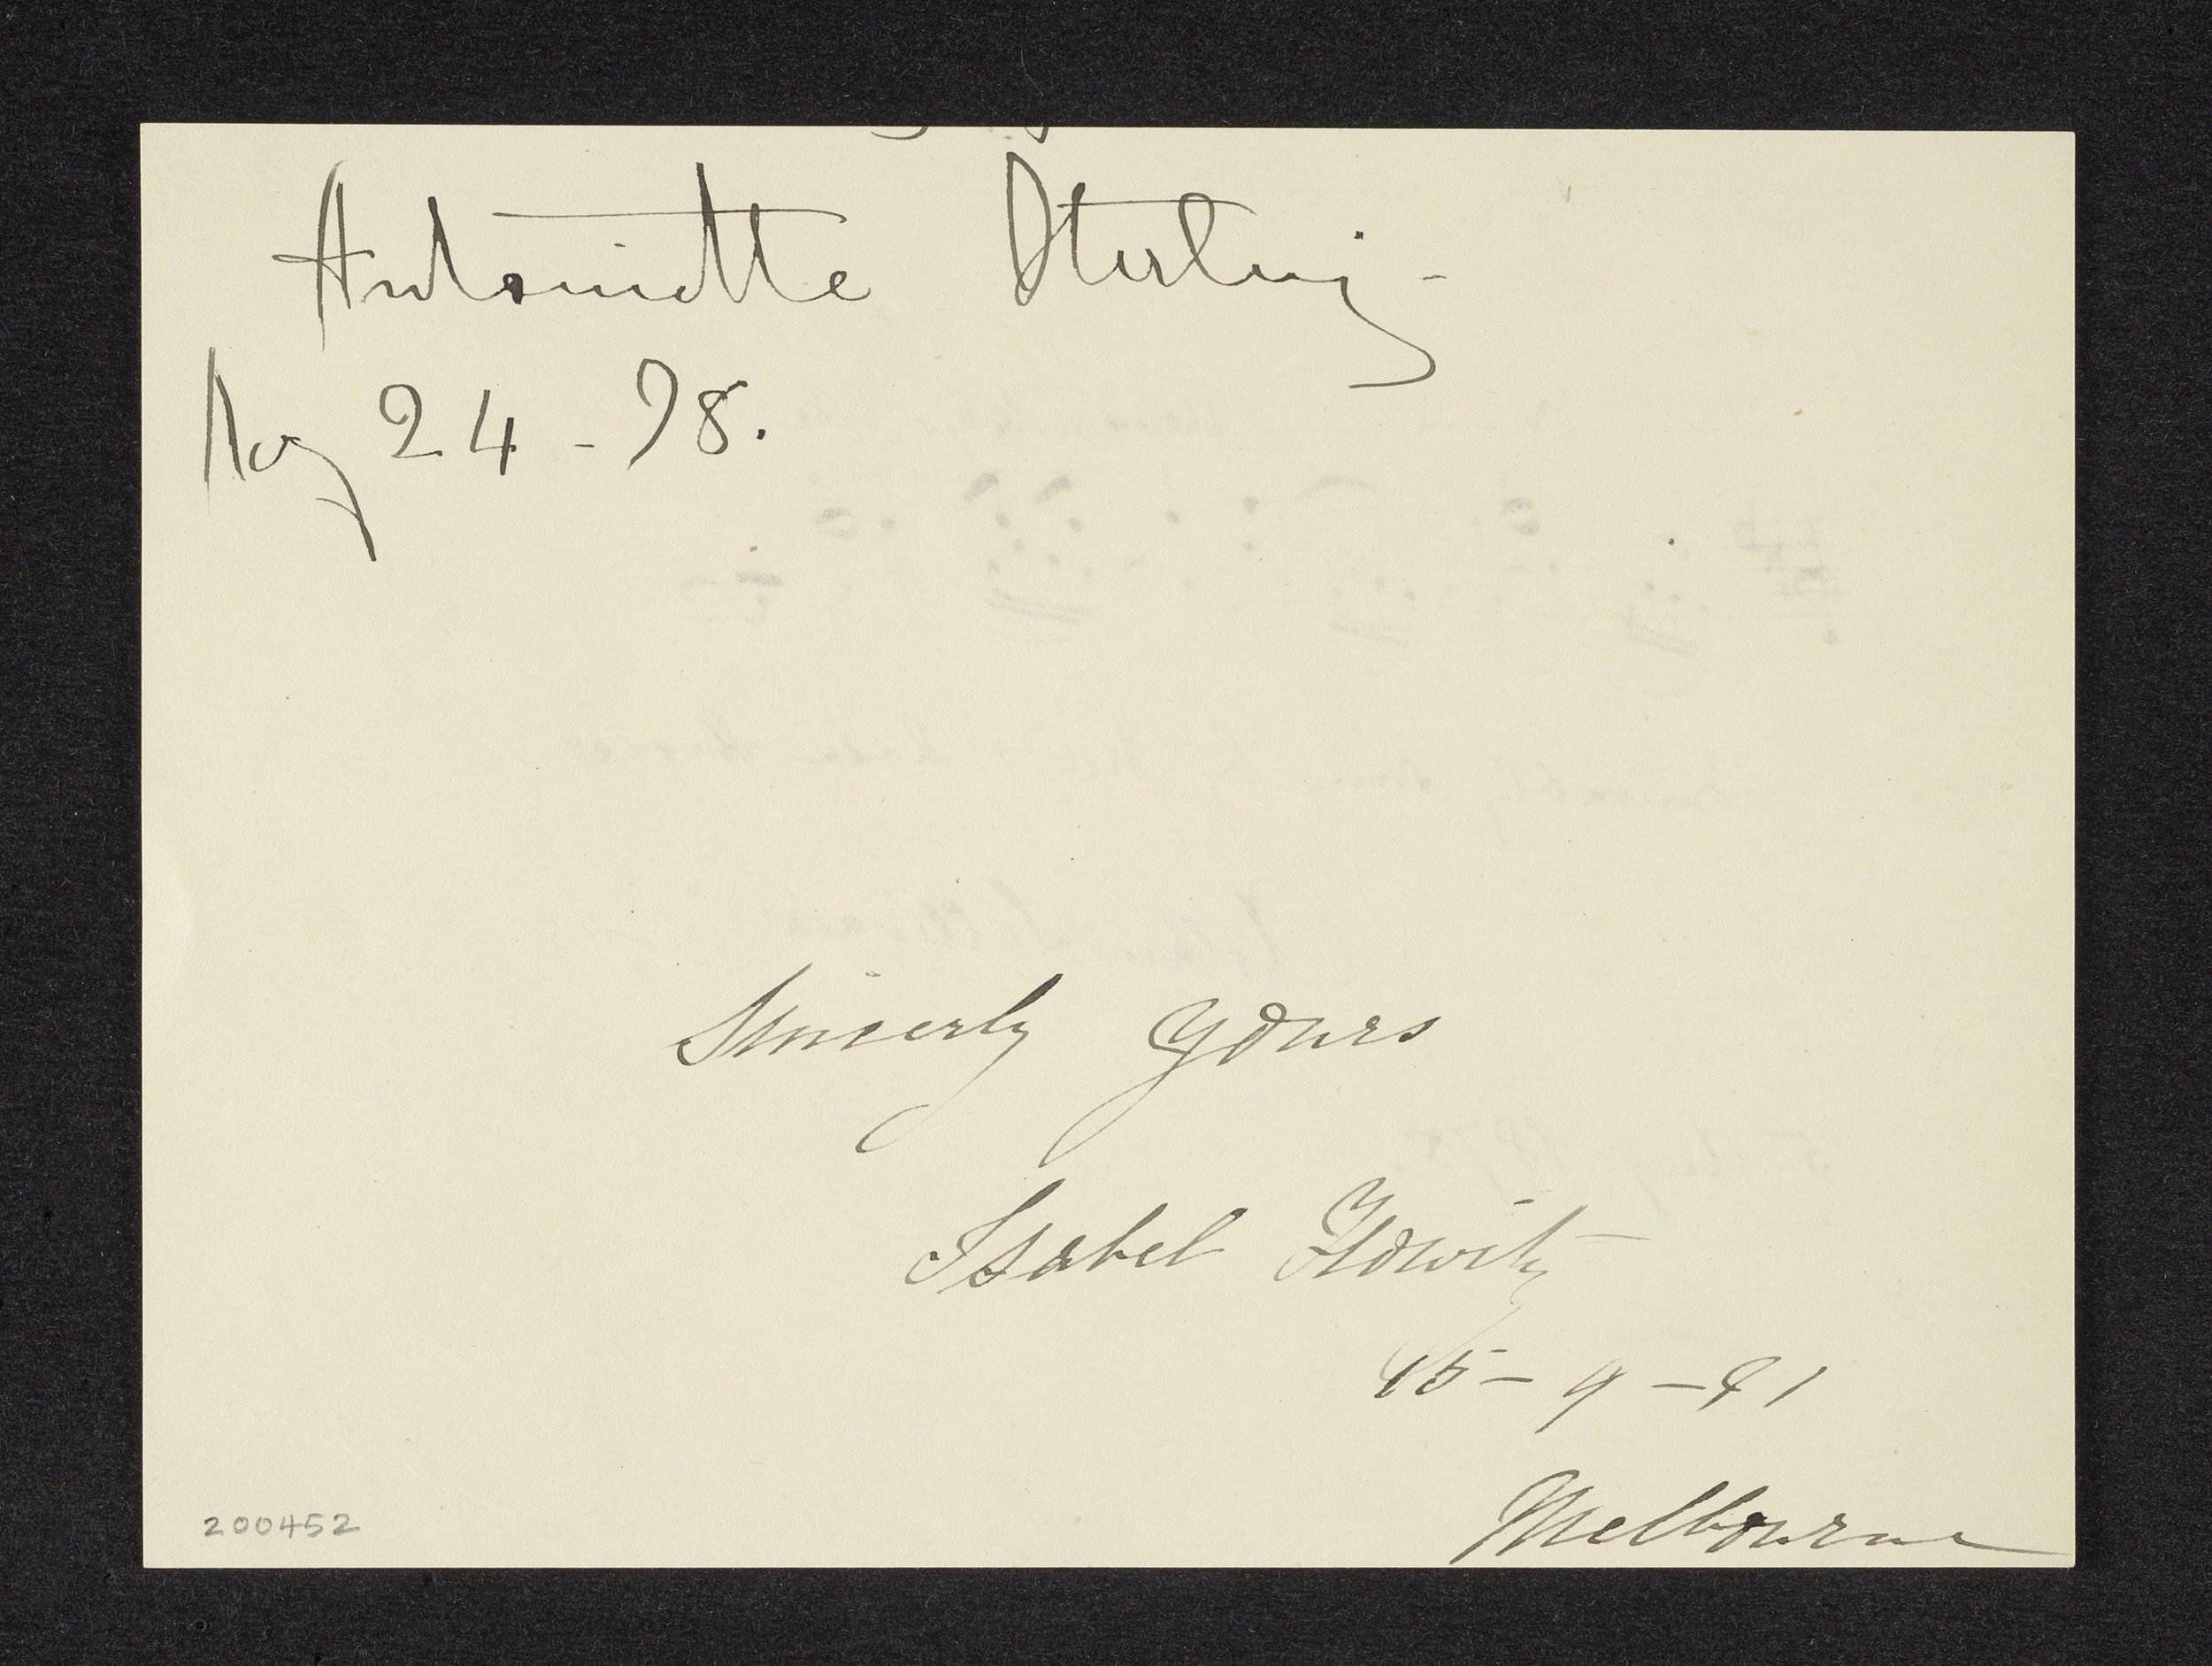 Antoinette Sterling -
Aug 24 - 98.
Sincerly yours
Isabel
15 - 9 - 91
Melbourne
200452